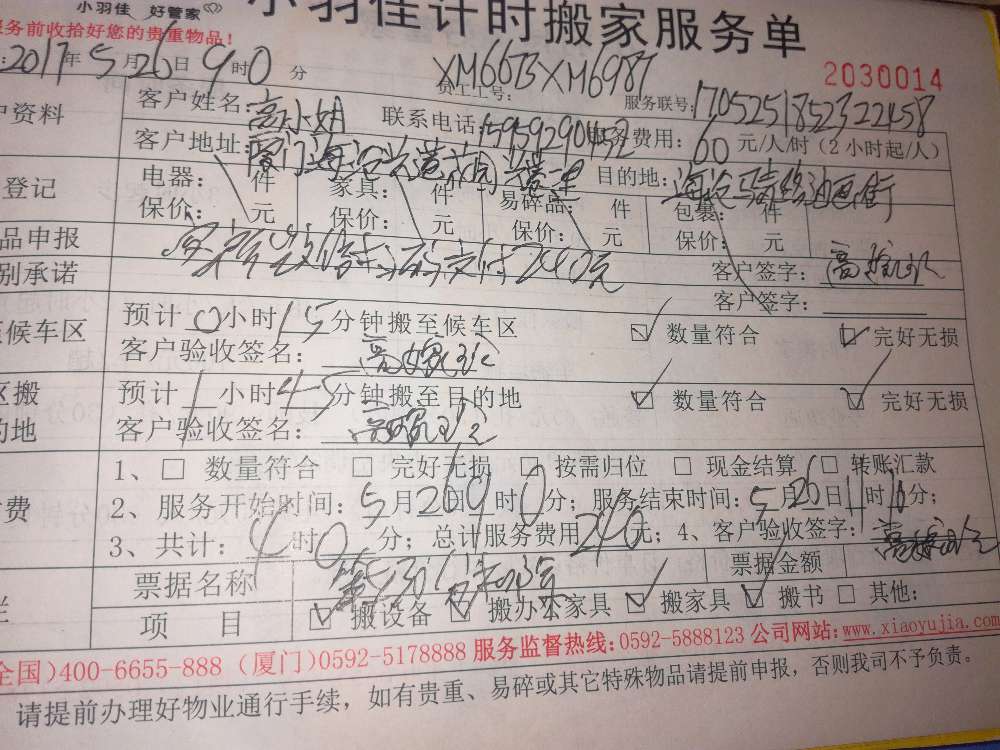 小羽佳 好管家
小羽佳计时搬家服务单
服务前收拾好您的贵重物品！
2017年5月26日9时0分
员工工号：XM6673XM6987
2030014
服务联号：170525185232 2458
户资料
客户姓名：高小姐
联系电话：15959290452
服务费用：60元/人/时（2小时起/人）
客户地址：厦门海沧
目的地：海沧 油画街
登记
电器： 件 家具： 件 易碎品： 件 包裹： 件
保价： 元 保价： 元 保价： 元 保价： 元
品申报
支付240元
客户签字：
别承诺
客户签字：
候车区
预计0小时15分钟搬至候车区
数量符合 完好无损
客户验收签名：
区搬
的地
预计1小时45分钟搬至目的地
数量符合 完好无损
客户验收签名：
1、□ 数量符合 □ 完好无损 □ 按需归位 □ 现金结算 □ 转账汇款
费
2、服务开始时间：5月26日9时0分；服务结束时间：5月26日11时 分；
3、共计：4时0分；总计服务费用240元；4、客户验收签字：
票据名称
票据金额
项 目
搬设备 搬办公家具 搬家具 搬书 □ 其他：
全国)400-6655-888 (厦门)0592-5178888 服务监督热线:0592-5888123 公司网站:www.xiaoyujia.com
请提前办理好物业通行手续，如有贵重、易碎或其它特殊物品请提前申报，否则我司不予负责。